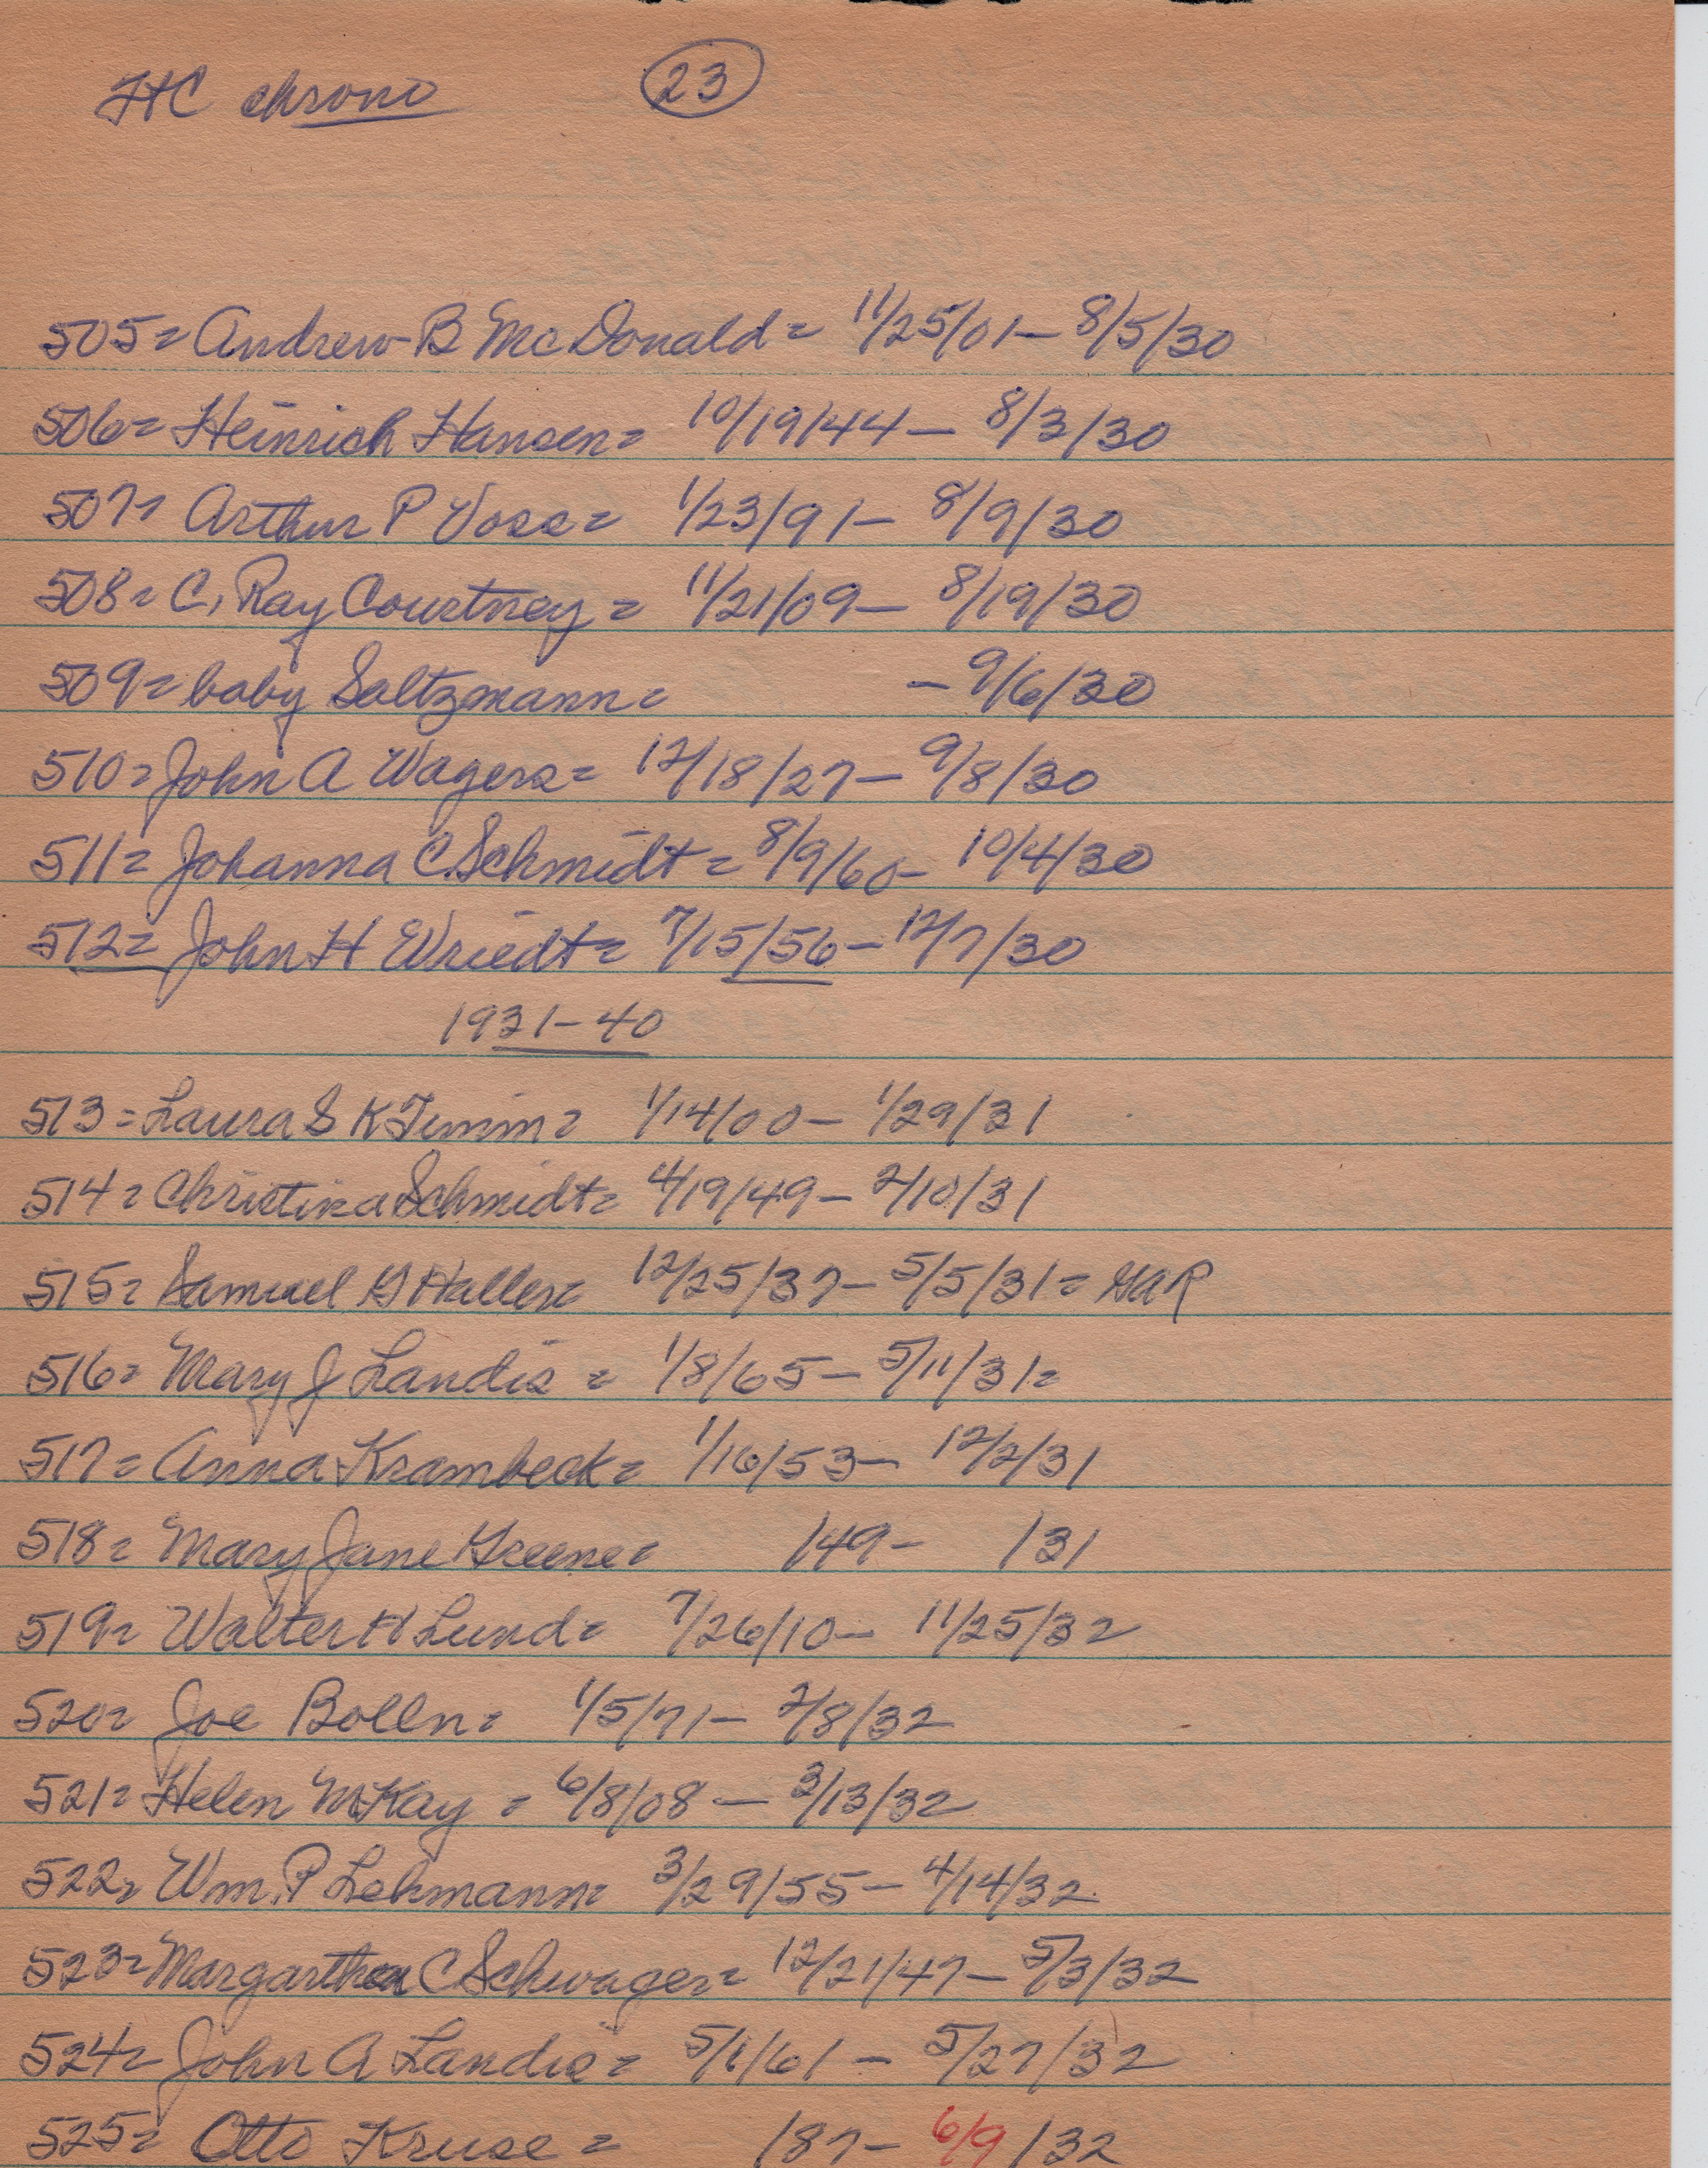 HC chrono 23
505= Andrew B McDonald= 11/25/01- 8/5/30
506= Heinrich Hansen= 10/19/44- 8/3/30
507= Arthur P Voss= 1/23/91- 8/9/30
508= C. Ray Courtney= 11/21/09- 8/19/30
509= baby Saltzmann= - 9/6/30
510= John A Wagers= 12/18/27- 9/8/30
511= Johanna C. Schmidt= 8/9/60- 10/4/30
512= John H Wriedt= 7/15/56- 12/7/30
1931-40
513= Laura S K Timm= 1/14/00- 1/29/31
514= Christina Schmidt= 4/19/49- 2/10/31
515= Samuel G Haller= 12/25/37- 5/5/31= GAR
516= Mary J Landis= 1/8/65- 5/11/31=
517= Anna Krambeck= 1/16/53- 12/2/31
518= Mary Jane Greene= /49- /31
519= Walter H Lund= 7/26/10- 11/25/32
520= Joe Bolln= 1/5/71- 2/8/32
521= Helen McKay= 6/8/08- 3/13/32
522= Wm. P Lehmann= 3/29/55- 4/14/32
523= Margarthea C Schwager= 12/21/47- 5/3/32
524= John A Landis= 5/1/61- 5/27/32
525= Otto Kruse= /87- 6/9/32